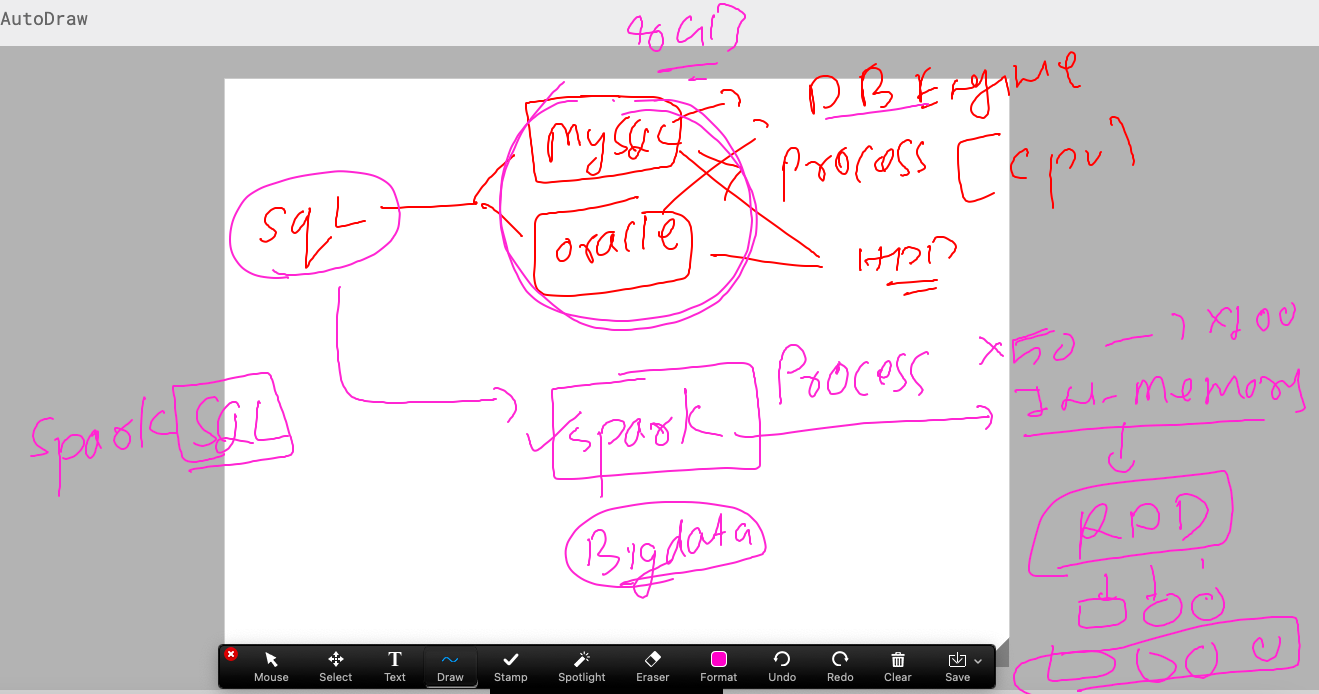 AutoDraw
DB Engine
mysql
Process [CPU]
sqL
oracle
HDD
x50 — x100
Process
IN-memory
Spark SQL
spark
RDD
Bigdata
Mouse
Select
Text
Draw
Stamp
Spotlight
Eraser
Format
Undo
Redo
Clear
Save